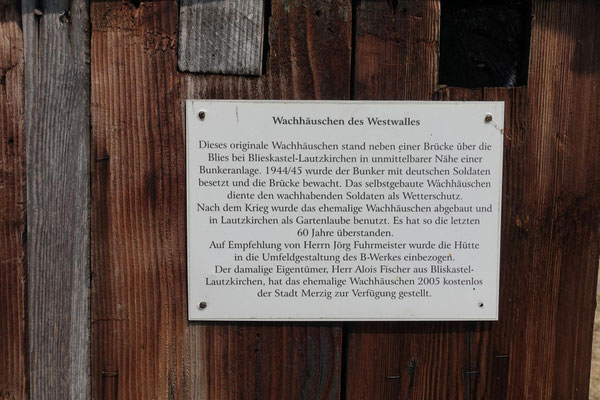 Wachhäuschen des Westwalles
Dieses originale Wachhäuschen stand neben einer Brücke über die
Blies bei Blieskastel-Lautzkirchen in unmittelbarer Nähe einer
Bunkeranlage. 1944/45 wurde der Bunker mit deutschen Soldaten
besetzt und die Brücke bewacht. Das selbstgebaute Wachhäuschen
diente den wachhabenden Soldaten als Wetterschutz.
Nach dem Krieg wurde das ehemalige Wachhäuschen abgebaut und
in Lautzkirchen als Gartenlaube benutzt. Es hat so die letzten
60 Jahre überstanden.
Auf Empfehlung von Herrn Jörg Fuhrmeister wurde die Hütte
in die Umfeldgestaltung des B-Werkes einbezogen.
Der damalige Eigentümer, Herr Alois Fischer aus Bliskastel-
Lautzkirchen, hat das ehemalige Wachhäuschen 2005 kostenlos
der Stadt Merzig zur Verfügung gestellt.